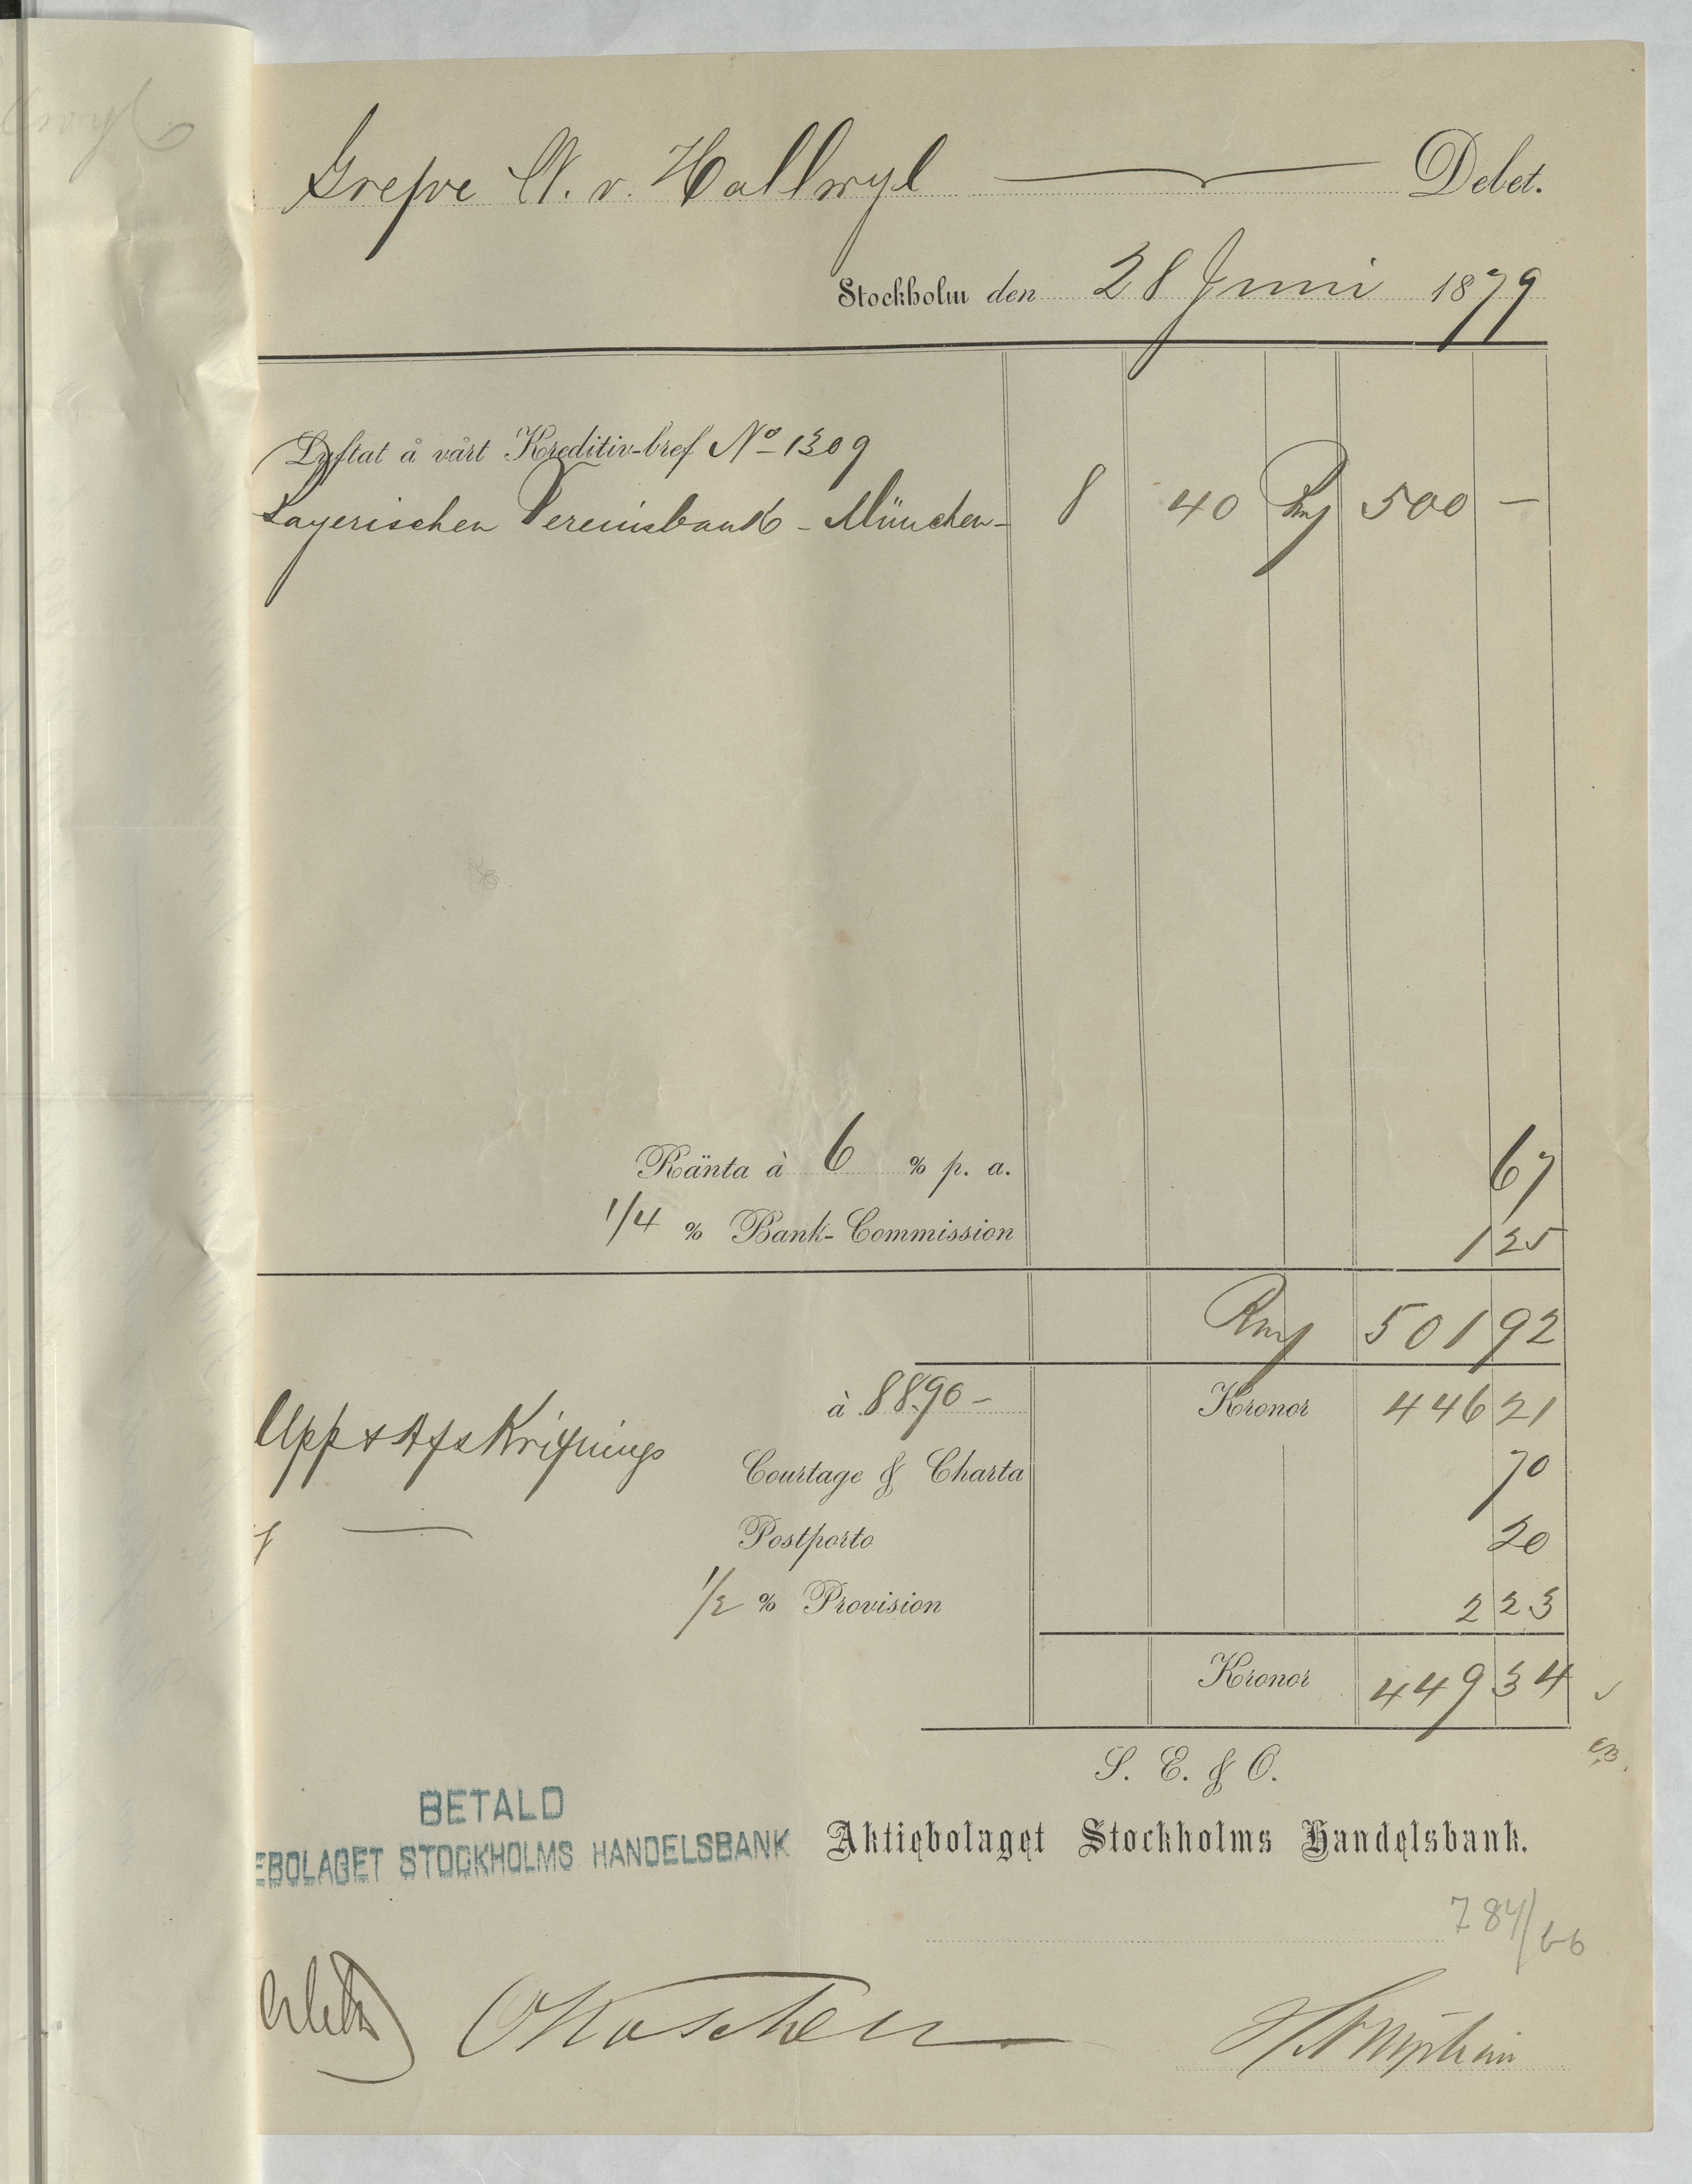 Grefve W. v. Hallwyl Debet.
Stockholm den 28 Juni 1879
Lyftat å vårt Kreditiv-bref No 1309
Bayerischen Vereinsbank - München - 8 40 Rmf 500 —
Ränta à 6 % p. a. 67
1/4 % Bank-Commission 1 25
Rmf 501 92
à 88.90 - Kronor 446 21
Upp & Afskrifnings
Courtage & Charta 70
Postporto 20
1/2 % Provision 2 23
Kronor 449 34
S. E. & O.
BETALD
EBOLAGET STOCKHOLMS HANDELSBANK
Aktiebolaget Stockholms Handelsbank.
784/66